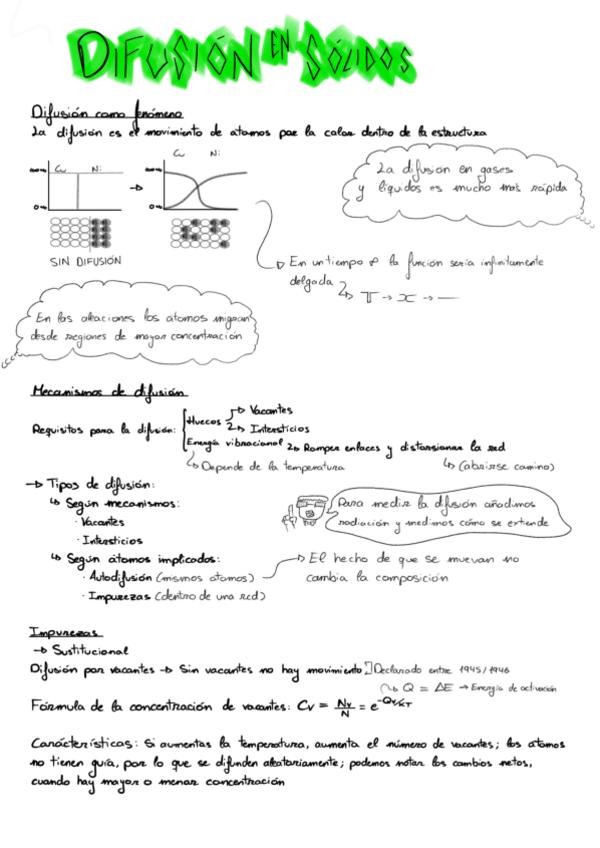 DIFUSIÓN EN SÓLIDOS
Difusión como fenómeno
La difusión es el movimiento de átomos por la calor dentro de la estructura
Cu Ni
Cu Ni
La difusión en gases
y líquidos es mucho más rápida
SIN DIFUSIÓN
En un tiempo ∞ la función sería infinitamente
delgada
T → x → —
En las aleaciones los átomos migran
desde regiones de mayor concentración
Mecanismos de difusión
Requisitos para la difusión:
Huecos
Vacantes
Intersticios
Energía vibracional
Romper enlaces y distorsionar la red
Depende de la temperatura
(abrirse camino)
→ Tipos de difusión:
Según mecanismos:
· Vacantes
· Intersticios
Para medir la difusión añadimos
radiación y medimos cómo se extiende
Según átomos implicados:
· Autodifusión (mismos átomos)
El hecho de que se muevan no
cambia la composición
· Impurezas (dentro de una red)
Impurezas
→ Sustitucional
Difusión por vacantes → Sin vacantes no hay movimiento ] Declarado entre 1945/1946
Q = ΔE → Energía de activación
Fórmula de la concentración de vacantes: Cv = Nv/N = e^-Qv/KT
Carácterísticas: Si aumentas la temperatura, aumenta el número de vacantes; los átomos
no tienen guía, por lo que se difunden aleatoriamente; podemos notar los cambios netos,
cuando hay mayor o menor concentración